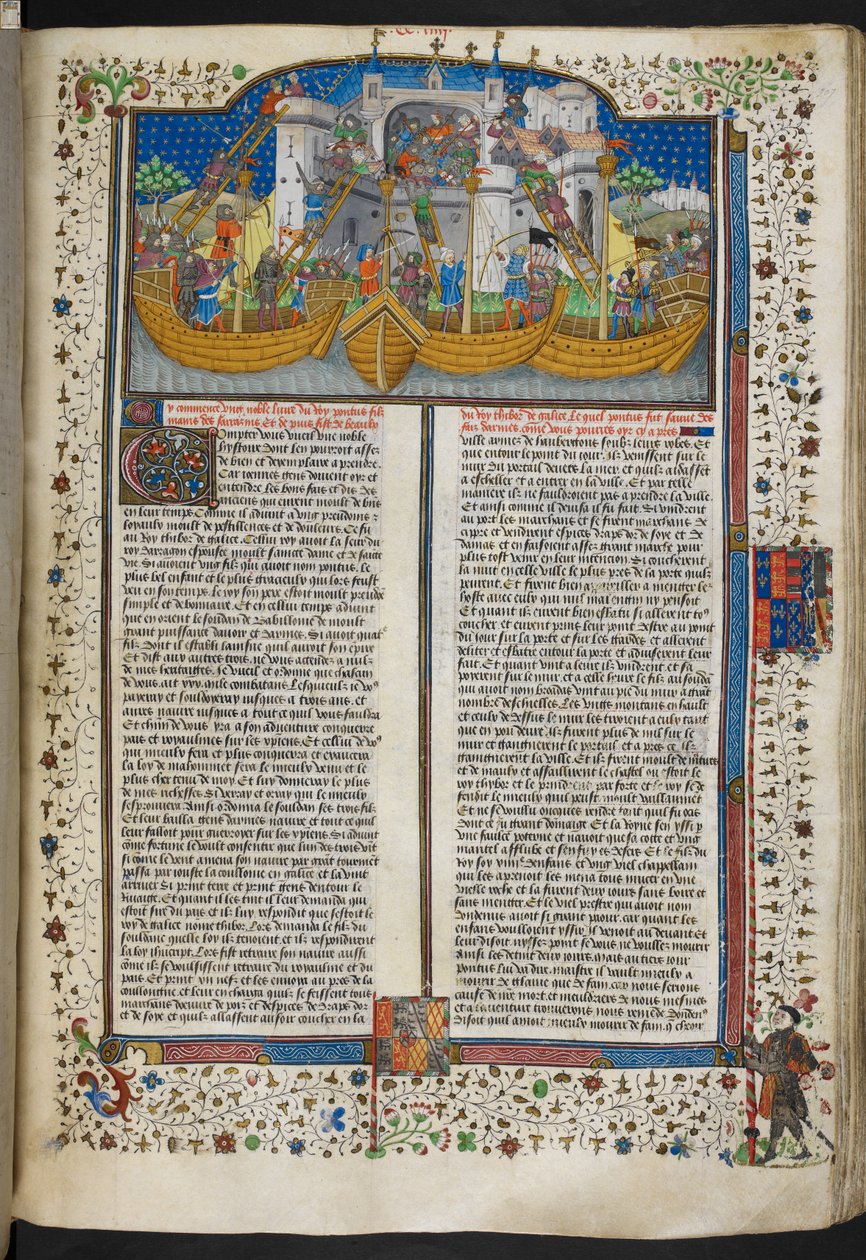 CC. iiij.
Cy commence ung noble livre du Roy pontus filz
du Roy thibor de galice. Le quel pontus fut sauve des
mains des sarrazins. Et de puis fist de beaulx
fais darmes. come vous pourres oyr cy apres
Compter vous vueil une noble
hystoire dont len pourroit assez
de bien et dexemplaire aprendre.
Car jeunes gens doivent oyr et
entendre les bons fais et dis des
anciens qui eurent moult de bien
en leur temps. Comme il advint a ung preudome &
loyaulx moult de pestillences et de douleurs. Ce fu
au Roy thibor de galice. Cellui roy avoit la seur du
roy darragon espousee moult saincte dame et de saicte
vie. Si avoient ung filz qui avoit nom pontus. Le
plus bel enfant et le plus gracieulx qui lors feust
veu en son temps. Le roy son pere estoit moult preude
simple et debonnaire. Et en cellui temps advint
que en orient le soudan de Babillonie de moult
grant puissance davoir et darmes. Si avoit quat
filz. Dont il establi laisne quil auroit son epire
Et dist aux autres trois. ne vous actendez a nulz
de mes heritaiges. Je vueil et ordonne que chascun
de vous ait xxx. mile combatans. Lesquelz je vo9
paieray et souldoyeray jusques a trois ans. et
aures navire jusques a tout ce quil vous fauldra
Et chun de vous yra a son adventure conquerre
pais et royaulmes sur les xpiens. Et cellui de vo9
qui mieulx fera et plus conquerra et exaucera
la loy de mahommet sera le mieulx venu et le
plus chier tenu de moy. Et luy donneray le plus
de mes richesses. Si verray et orray qui le mieulx
sesprouvera. Ainsi ordonna le souldan ses trois filz
Et leur bailla gens darmes navire et tout ce que
leur falloit pour guerroyer sur les xpiens. Si advint
come fortune le voult consentir que lun des trois dit
si come le vent amena son navire par grat tourment
passa par jouste la coulloine en galice et la vint
arriver Si print terre et print gens dentour le
Rivaige. Et quant il les tint il leur demanda qui
estoit sire du pais et ilz luy respondirent que cestoit le
roy de galice nome thibor. Lors demanda le filz du
souldan quelle loy ilz tenoient. et ilz respondirent
la loy ihucript. Lors fist retraire son navire aussi
come ilz se voulsissent retraire du royaulme et du
pais. Et print un nef. et les envoya au pres de la
coulloingne et leur encharga quilz se feissent tous
marchans de cuire de porc et despices de draps dor
et de soye et quilz allassent au soir coucher en la
ville armez de haubertons soubz leurs robes. Et
que entour le point du jour. ilz venissent sur le
mur du portail devers la mer et quilz aidasset
a escheller & a entrer en la ville. Et par telle
maniere ilz ne fauldroient pas a prendre la ville.
Et ainsi comme il devisa il fu fait. Si vindrent
au port les marchans et se firent marchans de
cipre et vendirent espices draps dor de soye et de
damas et en faisoient assez grant marche pour
plus tost venir en leur intencion. Si coucherent
la nuit en celle ville le plus pres de la porte quilz
peurent. Et firent bien a mengier
hoste avec eulx qui nul mal engin ny pensoit
Et quant ilz eurent bien esbatu si allerent to9
coucher et eurent prins leur point destre au point
du jour sur la porte et sur les gardes. et allerent
deliter et esbatre entour la porte et adviserent leur
fait. Et quant vint a leure ilz vindrent et sa
poserent sur le mur. et a celle heure le filz au souda
qui avoit nom broadas vint au pie du mur a grat
nombre deschelles. Les ungs montans en hault
et ceulx de dessus le mur les tiroient a eulx tant
que en pou deure. ilz furent plus de mil sur le
mur et gaingnerent le portail. et apres ce. ilz
gaingnerent la ville. Et ilz firent moult de murtres
et de maulx et assaillirent le chastel ou estoit le
roy thybor et le prindrent par force et le roy se de
fendit le mieulx quil peust moult vaillaument
Et ne se voullu oncques rendre tant quil fu occis
Dont ce fu grant domaige. Et la Royne sen yssi p
une faulce poterne et navoit que sa cotte et ung
mantel affluble et senfuy es desers. Et le filz du
roy soy xiiije denfans et ung vieil chappellain
qui les aprenoit les mena tous mucier en une
vielle roche et la furent deux jours sans boire et
sans mengier. Et le vieil prestre qui avoit nom
dondenus avoit si grant paour. car quant les
enfans voulloient yssir. il venoit au devant Et
leur disoit nyssez point se vous ne voullez mourir
Ainsi les detint deux jours. Mais au tiers jour
pontus lui va dire. maistre il vault mieulx a
mourir de glaive que de fain. car nous serions
cause de nre mort. et meurdriers de nous mesmes
et a laventure trouverons nous remede. Donden9
disoit quil aimoit mieulx mourir de fain. que cheoir